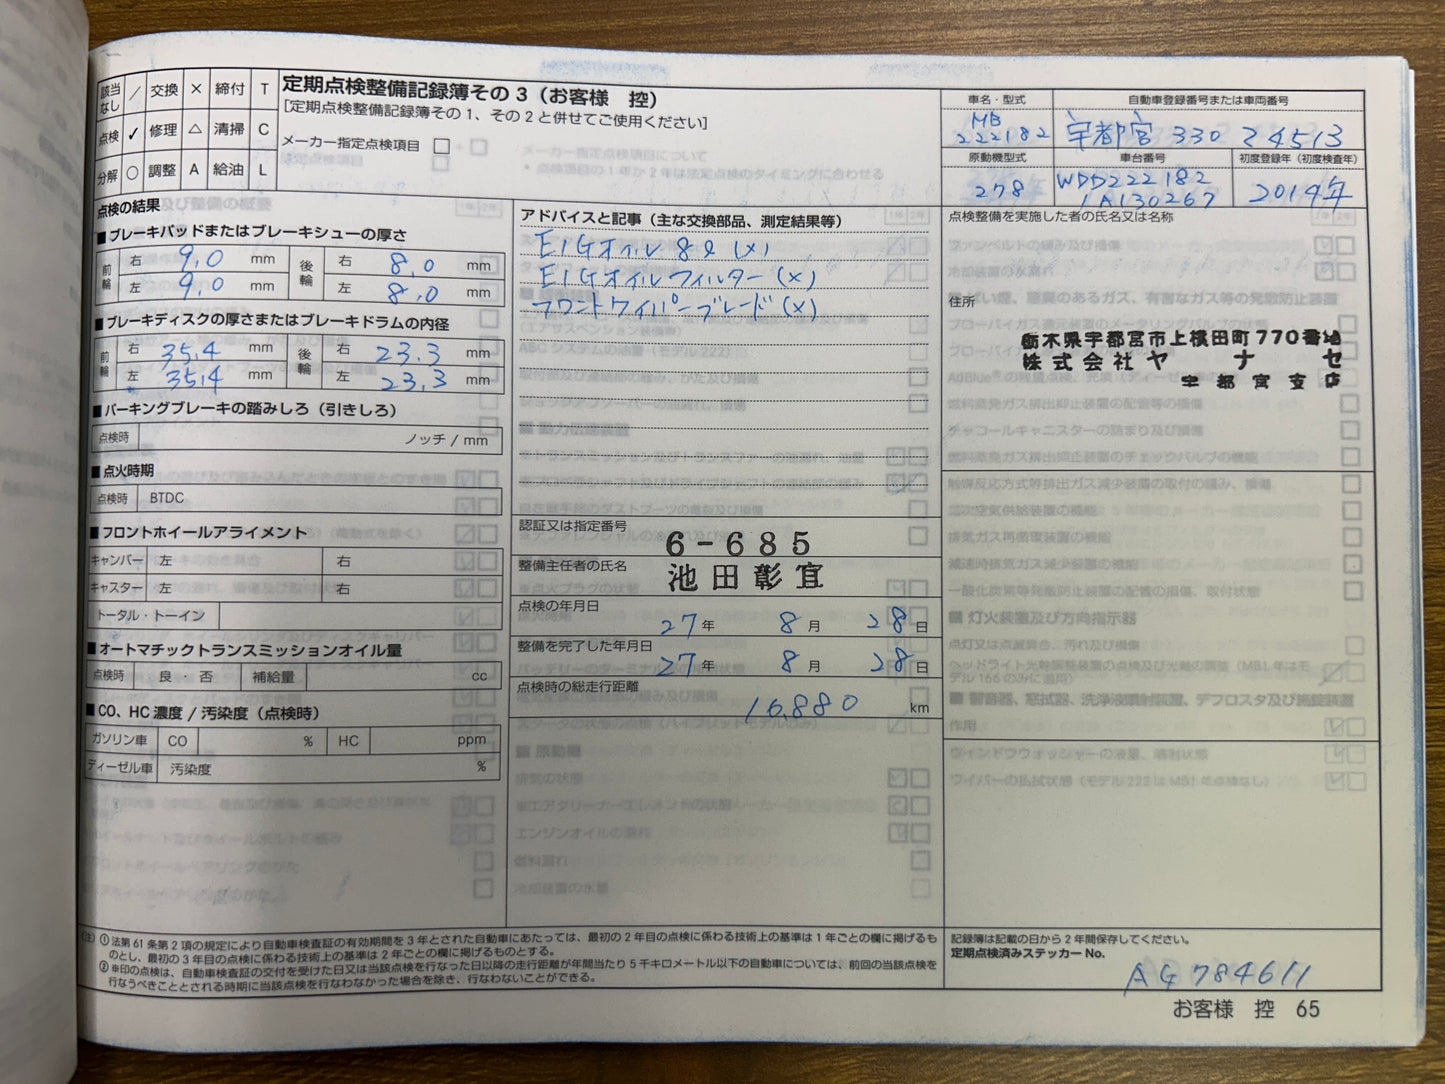 該当なし ／ 交換 × 締付 T
点検 ✓ 修理 △ 清掃 C
分解 ○ 調整 A 給油 L
定期点検整備記録簿その3（お客様　控）
[定期点検整備記録簿その1、その2と併せてご使用ください]
メーカー指定点検項目 □
車名・型式
MB
222182
自動車登録番号または車両番号
宇都宮 330 そ4513
原動機型式
278
車台番号
WDD222182
1A130267
初度登録年（初度検査年）
2014年
点検の結果
■ ブレーキパッドまたはブレーキシューの厚さ
前輪 右 9.0 mm 後輪 右 8.0 mm
左 9.0 mm 左 8.0 mm
■ ブレーキディスクの厚さまたはブレーキドラムの内径
前輪 右 35.4 mm 後輪 右 23.3 mm
左 35.4 mm 左 23.3 mm
■ パーキングブレーキの踏みしろ（引きしろ）
点検時 ノッチ / mm
■ 点火時期
点検時 BTDC
■ フロントホイールアライメント
キャンバー 左 右
キャスター 左 右
トータル・トーイン
■ オートマチックトランスミッションオイル量
点検時 良・否 補給量 cc
■ CO、HC 濃度 / 汚染度（点検時）
ガソリン車 CO % HC ppm
ディーゼル車 汚染度 %
アドバイスと記事（主な交換部品、測定結果等）
E/Gオイル 8ℓ (×)
E/Gオイルフィルター (×)
フロントワイパーブレード (×)
認証又は指定番号
6-685
整備主任者の氏名
池田彰宜
点検の年月日
27 年 8 月 28 日
整備を完了した年月日
27 年 8 月 28 日
点検時の総走行距離
16,880 km
点検整備を実施した者の氏名又は名称
住所
栃木県宇都宮市上横田町770番地
株式会社ヤナセ
宇都宮支店
(注) ① 法第61条第2項の規定により自動車検査証の有効期間を3年とされた自動車にあたっては、最初の2年目の点検に係わる技術上の基準は1年ごとの欄に掲げるも
のとし、最初の3年目の点検に係わる技術上の基準は2年ごとの欄に掲げるものとする。
② ※印の点検は、自動車検査証の交付を受けた日又は当該点検を行なった日以降の走行距離が年間当たり5千キロメートル以下の自動車については、前回の当該点検を
行なうべきこととされる時期に当該点検を行なわなかった場合を除き、行なわないことができる。
記録簿は記載の日から2年間保存してください。
定期点検済みステッカーNo.
AG 784611
お客様　控　65